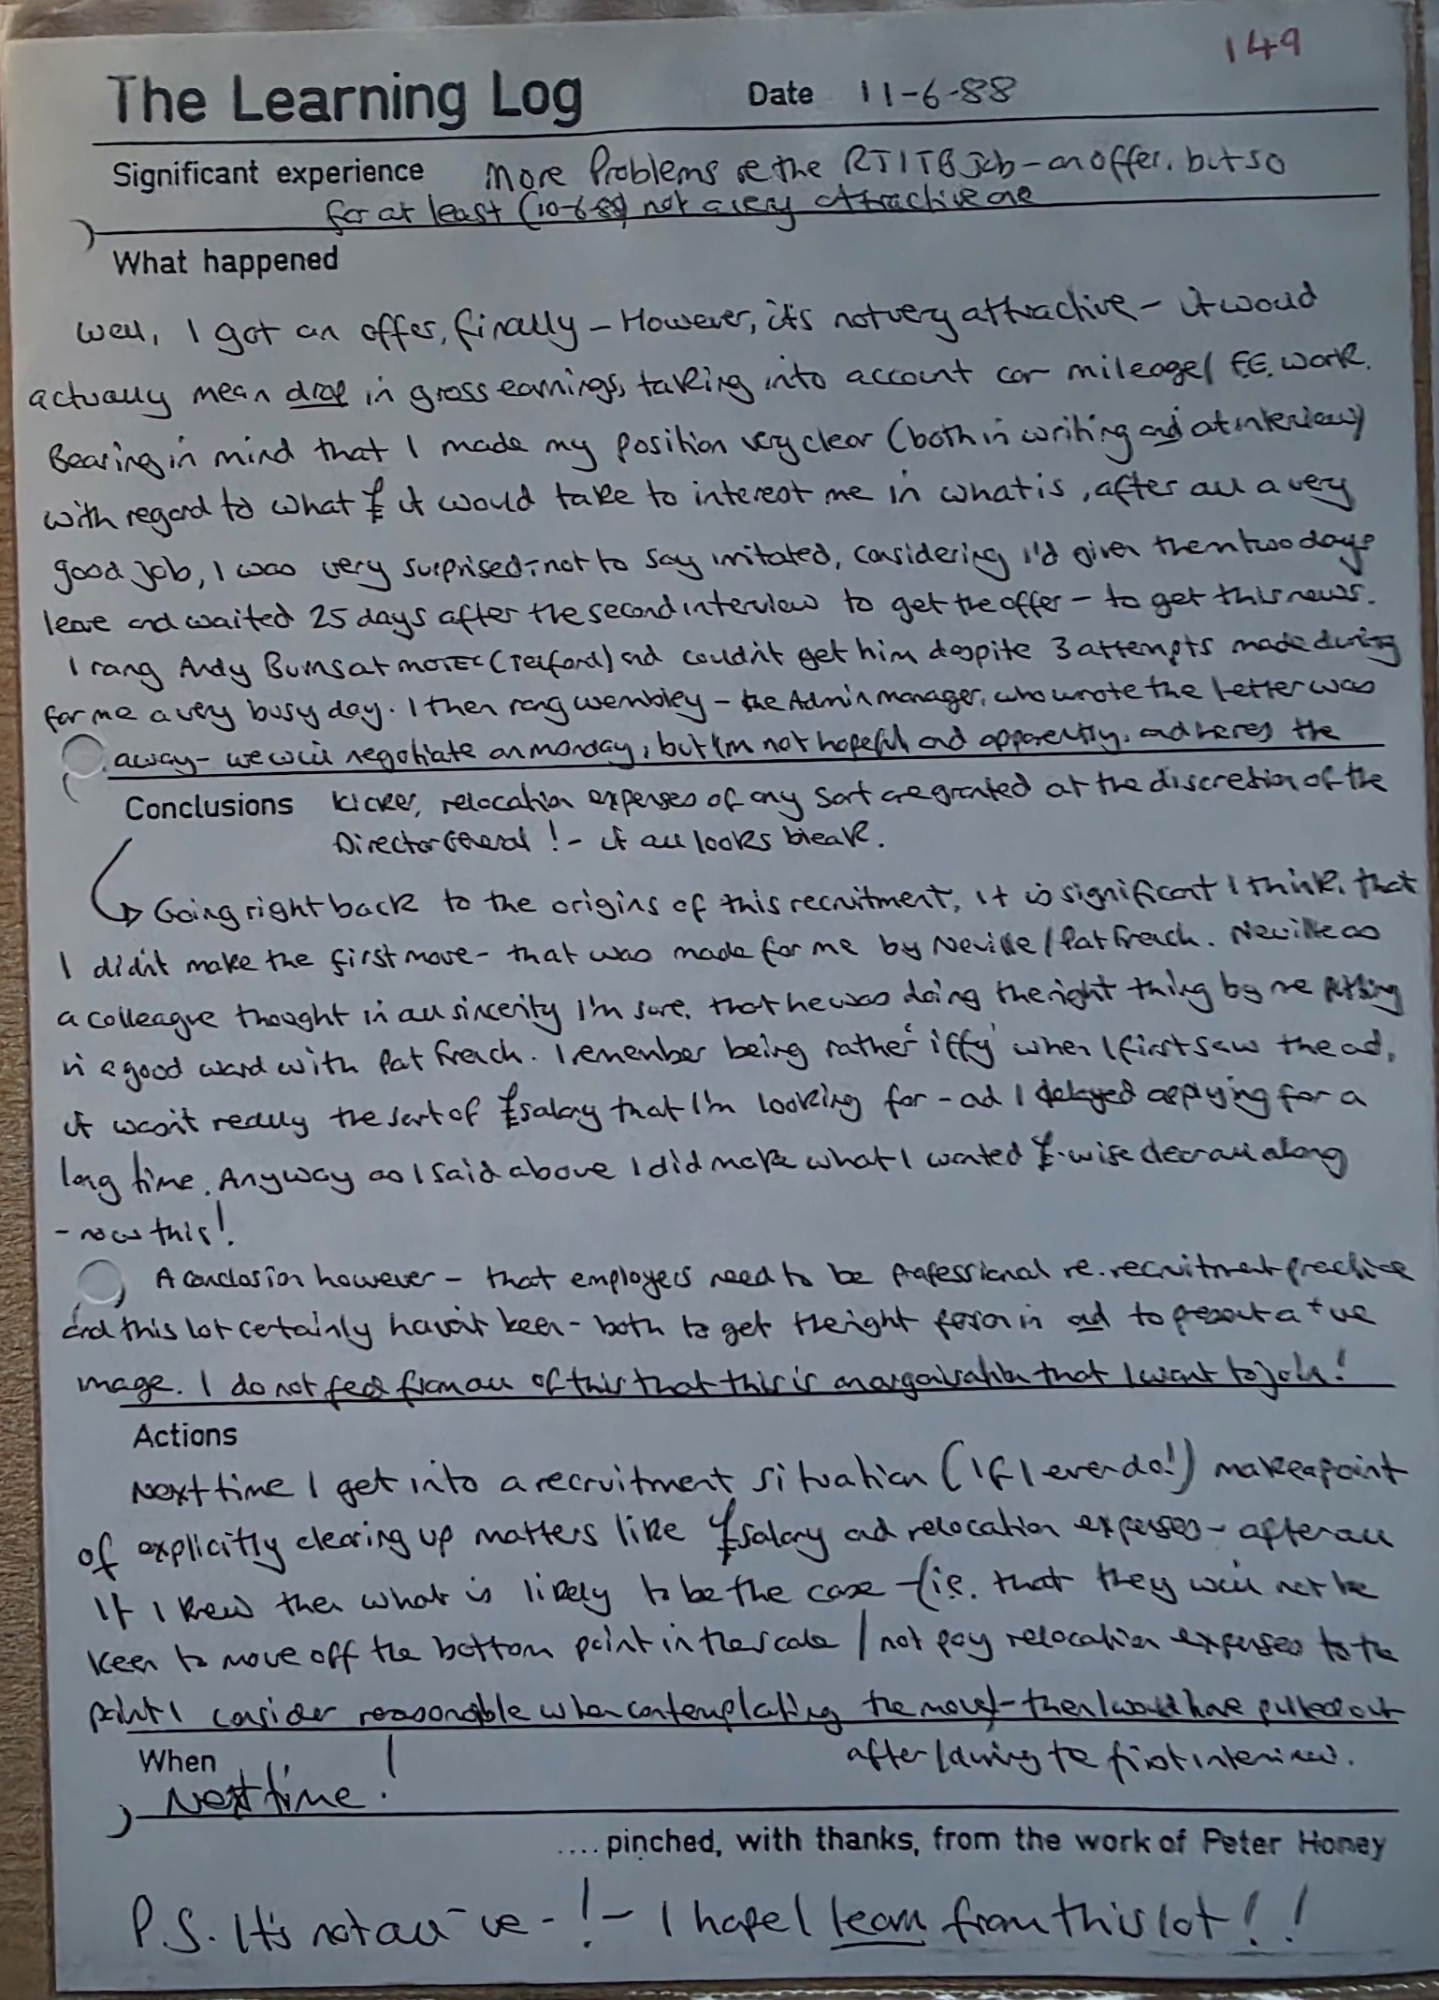 149
The Learning Log Date 11-6-88
Significant experience More Problems re the RTITB Job - an offer, but so
far at least (10-6-88) not a very attractive one
What happened
Well, I got an offer, finally - However, it's not very attractive - it would
actually mean drop in gross earnings, taking into account car mileage/ F.E. work.
Bearing in mind that I made my position very clear (both in writing and at interview)
with regard to what £ it would take to interest me in what is, after all a very
good job, I was very surprised - not to say irritated, considering I'd given them two days
leave and waited 25 days after the second interview to get the offer - to get this news.
I rang Andy Burns at MOTEC (Telford) and couldn't get him despite 3 attempts made during
for me a very busy day. I then rang Wembley - the Admin manager, who wrote the letter was
away - we will negotiate on monday, but I'm not hopeful and apparently, and here's the
Conclusions kicker, relocation expenses of any sort are granted at the discretion of the
Director General! - it all looks bleak.
Going right back to the origins of this recruitment, it is significant I think, that
I didn't make the first move - that was made for me by Neville / Pat French. Neville as
a colleague thought in all sincerity I'm sure, that he was doing the right thing by me putting
in a good word with Pat French. I remember being rather 'iffy' when I first saw the ad,
it wasn't really the sort of £salary that I'm looking for - and I delayed applying for a
long time. Anyway as I said above I did make what I wanted £-wise clear all along
- now this!
A conclusion however - that employers need to be professional re. recruitment practice
and this lot certainly havn't been - both to get the right person in and to present a +ve
image. I do not feel from all of this that this is an organisation that I want to join!
Actions
Next time I get into a recruitment situation (If I ever do!) make a point
of explicitly clearing up matters like £salary and relocation expenses - after all
If I knew then what is likely to be the case - (ie. that they will not be
keen to move off the bottom point in the scale / not pay relocation expenses to the
point I consider reasonable when contemplating the move) - then I would have pulled out
after/during the first interview.
When
Next time!
.... pinched, with thanks, from the work of Peter Honey
P.S. It's not all -ve - ! - I hope I learn from this lot!!